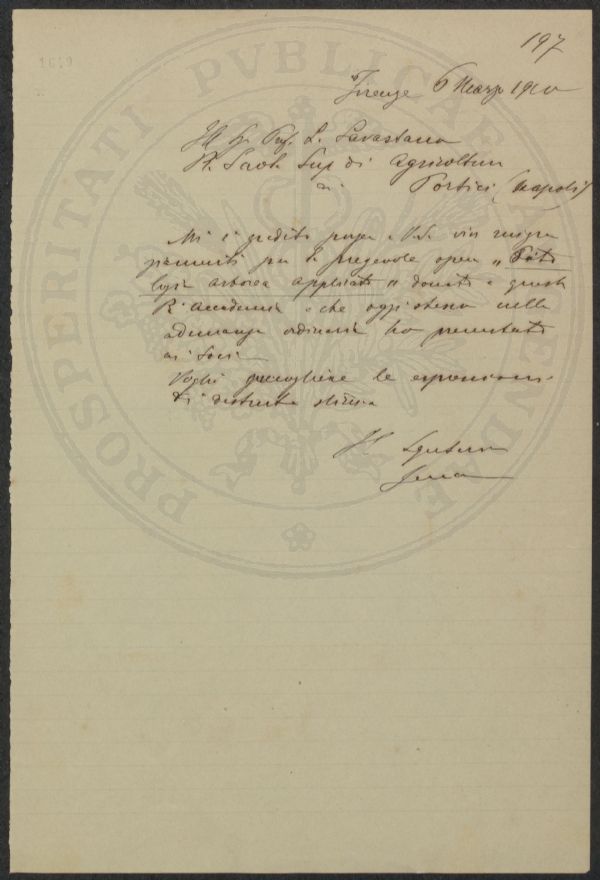 197
1619
PROSPERITATI PVBLICAE AVGENDAE
Firenze 6 Marzo 1910
Ill Sr Prof. L. Savastano
R. Scola Sup di Agricoltura
di Portici (Napoli)
Mi è gradito porgere V.S. vivi ringra
ziamenti per la pregevole opera „ Pato
logia arborea applicata „ donata a questa
R. Accademia e che oggi stesso nella
adunanza ordinaria ho presentata
ai Soci
Voglia accogliere le espressioni
di distinta stima
Il